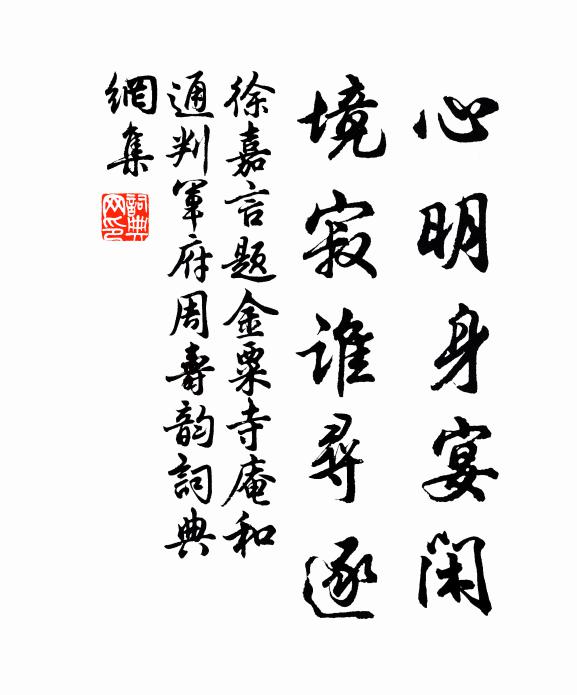 心明身宴闲
境寂谁寻逐
徐嘉言题金粟寺庵和
通判军府周寿韵詞典
網集
詞典网印